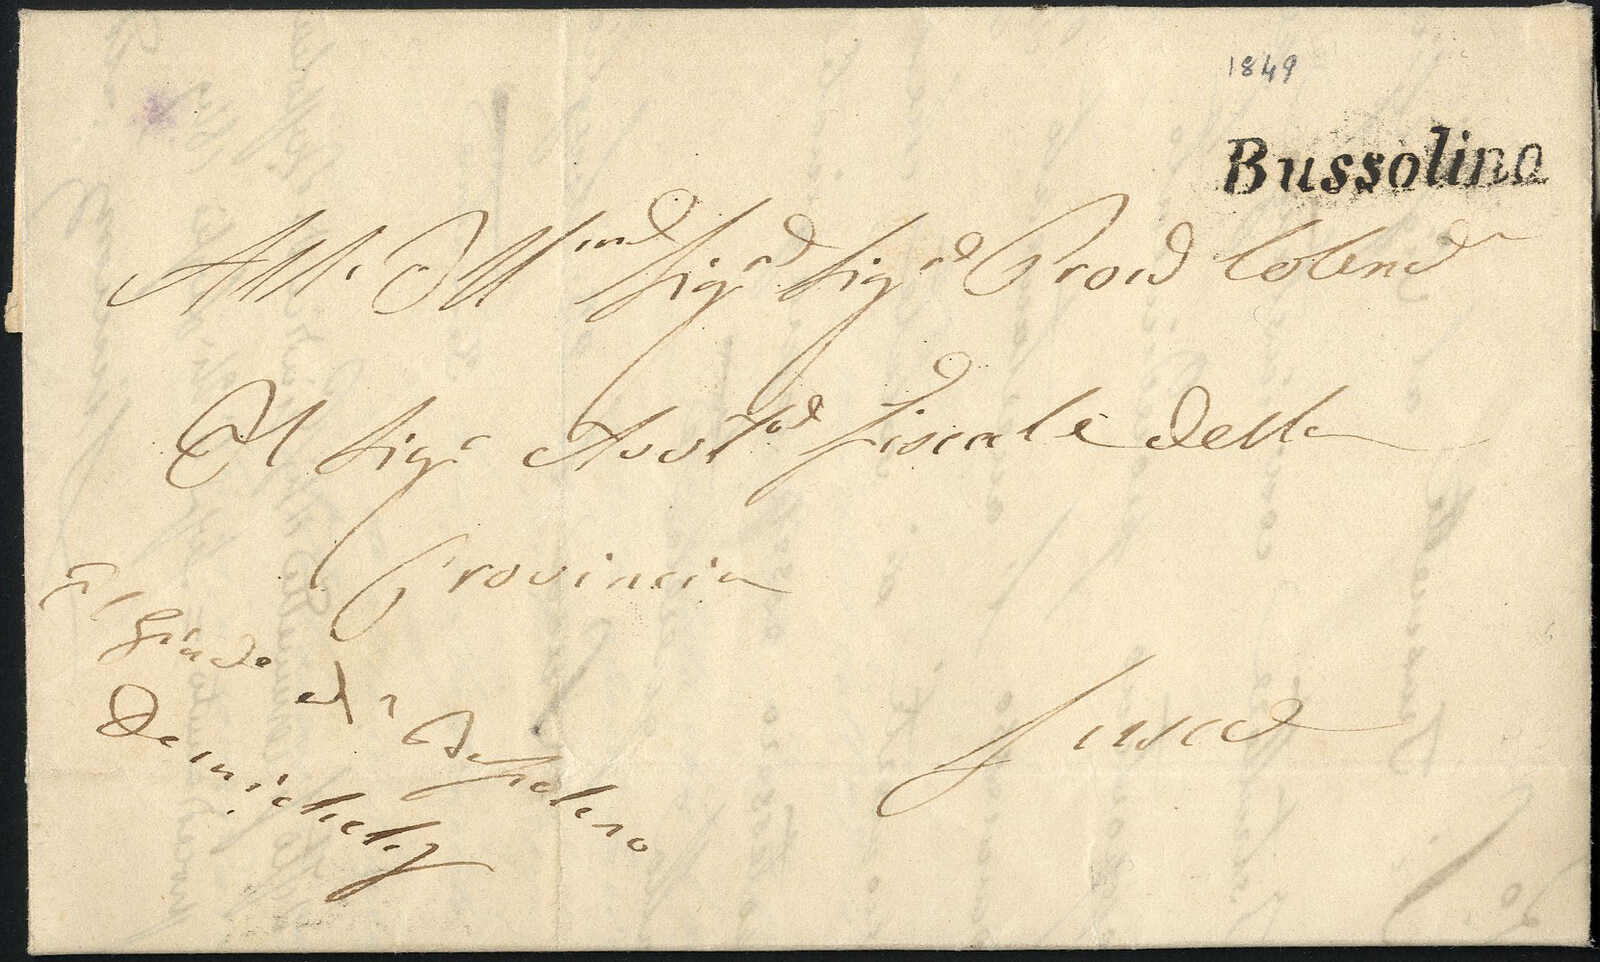 1849
Bussolino
All' Ill.mo Sig.r Sig.r Pron Colend.
Il Sig.r Avv.to Fiscale della
Provincia
Susa
Il Giudice di Bussoleno
Demichelis